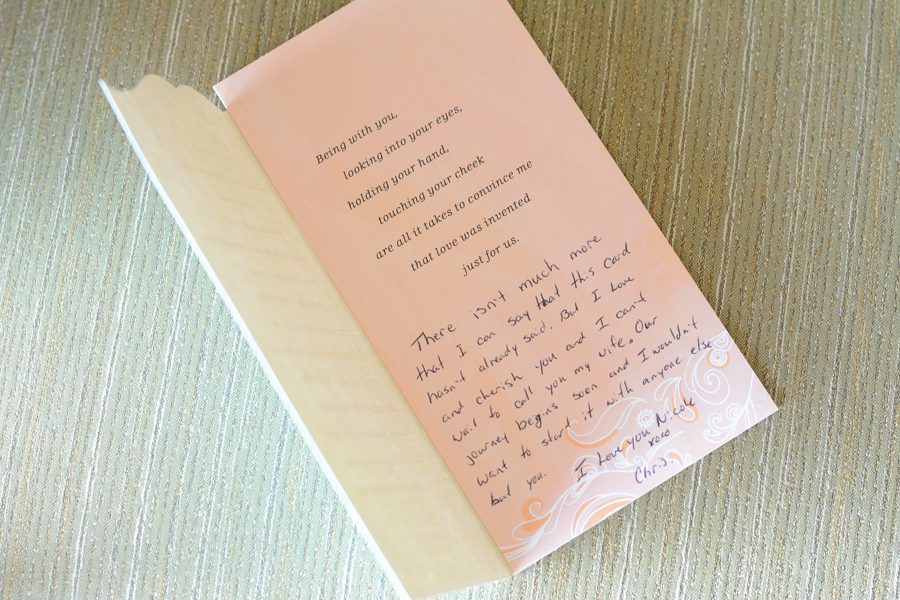 Being with you,
looking into your eyes,
holding your hand,
touching your cheek
are all it takes to convince me
that love was invented
just for us.
There isn't much more
that I can say that this card
hasn't already said. But I Love
and cherish you and I can't
wait to call you my wife. Our
journey begins soon and I wouldn't
want to start it with anyone else
but you. I Love you Nicole
xoxo
Chris.